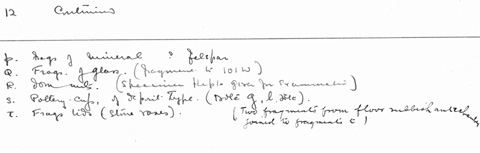 12 Continued
P. Frags of mineral ? felspar
Q. Frags. of glass. (Fragment to 101W)
R. Dom nuts. (Specimen kept given for Examination)
S. Pottery cup, of depril Type. (
T. Frags lids (Stone vases). (Two fragments from floor rubbish antechamber
joined to fragments C)